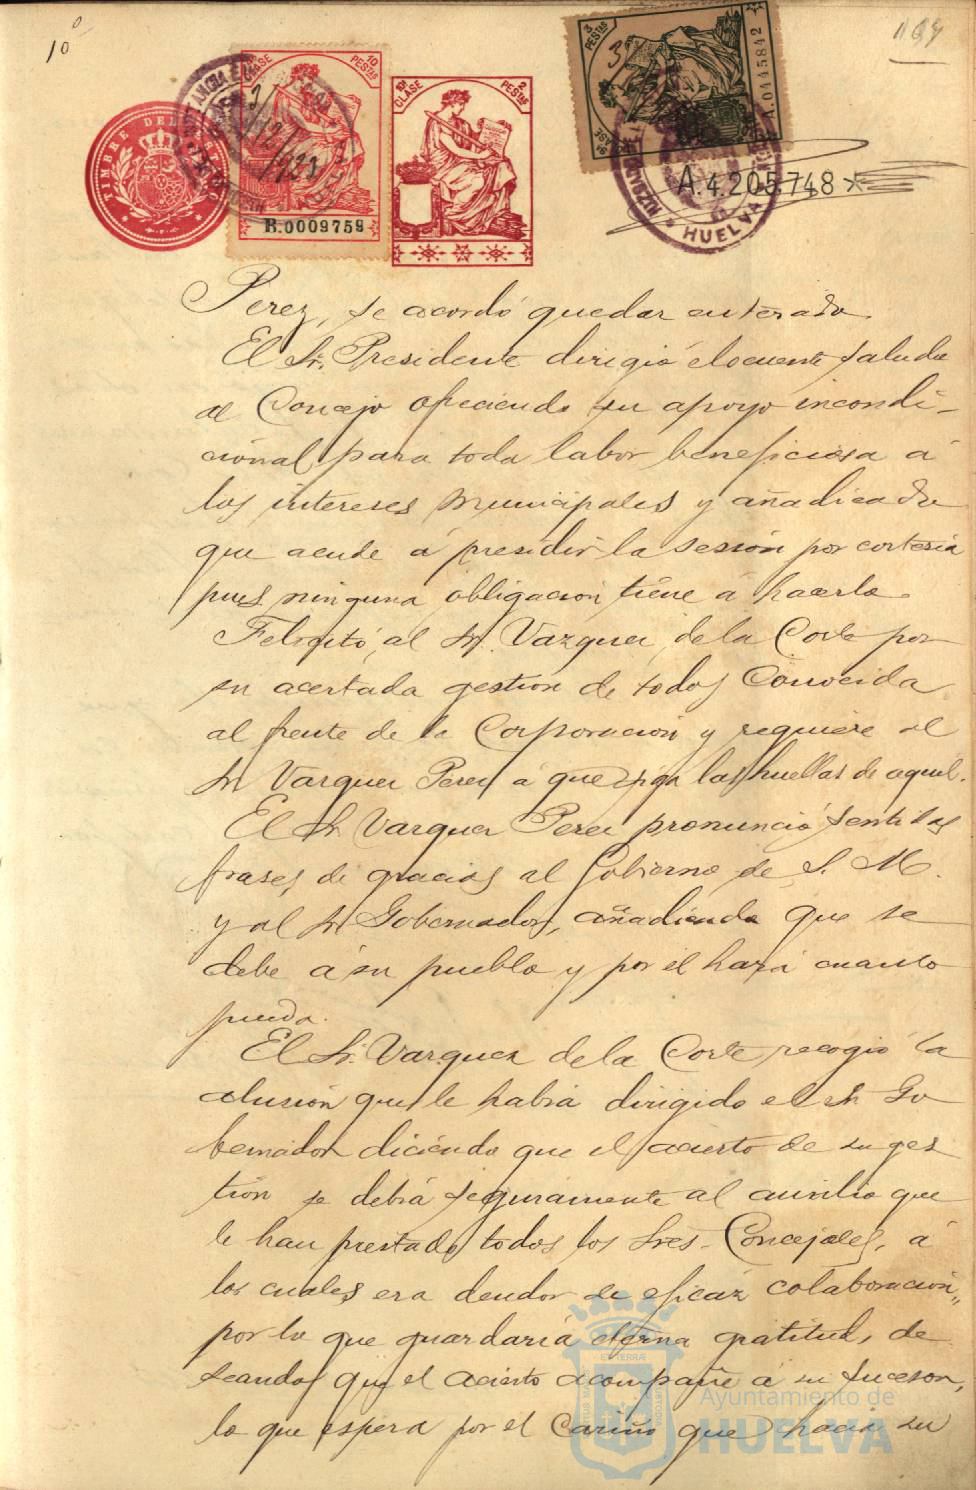 10
CLASE 10 PESTAS
B.0009759
TIMBRE DEL
10ª CLASE 2 PESTAS
3 PESTAS
A.0445842
A.4.205.748*
HUELVA
Perez, se acordó quedar enterado.
El Sr. Presidente dirigió elocuente saludo
al Concejo ofreciendo su apoyo incondi-
cional para toda labor beneficiosa á
los intereses municipales y añadiendo
que acude á presidir la sesión por cortesia
pues ninguna obligacion tiene á hacerlo.
Felicitó al Sr. Vazquez de la Corte por
su acertada gestion de todos conocida
al frente de la Corporacion y requiere al
Sr Vazquez Perez á que siga las huellas de aquel.
El Sr Vazquez Perez pronunció sentidas
frases de gracias al Gobierno de S. M.
y al Sr Gobernador, añadiendo que se
debe á su pueblo y por el hará cuanto
pueda.
El Sr. Vazquez de la Corte recogió la
alusión que le habia dirigido el Sr Go
bernador diciendo que el acierto de su ges
tion se debía seguramente al auxilio que
le han prestado todos los Sres. Concejales, á
los cuales era deudor de eficaz colaboracion,
por lo que guardaría eterna gratitud, de
seando que el acierto acompañe á su sucesor,
lo que espera por el cariño que hacia su
Ayuntamiento de
HUELVA